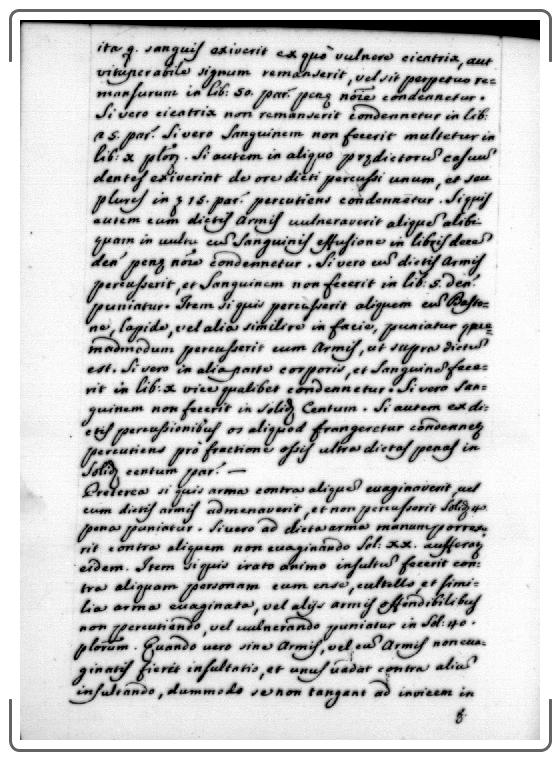 ita q. sanguis exiverit ex quo vulnere cicatrix, aut
vituperabile signum remanserit, vel sit perpetuo re=
mansurum in lib: 50. par. penę nõie condennetur.
Si vero cicatrix non remanserit condennetur in lib:
25. par. Si vero Sanguinem non fecerit multetur in
lib: x plõr. Si autem in aliquo prędictorũ casuũ
dentes exiverint de ore dicti percussi unum, et seu
plures in 15. par. percutiens condennetur. Si quis
autem cum dictis Armis vulneraverit aliquẽ alibi
quam in vultu cũ Sanguinis effusione in libris decẽ
den. penę nõie condennetur. Si vero cũ dictis Armis
percusserit, et Sanguinem non fecerit in lib: 5. den.
puniatur. Item si quis percusserit aliquem cũ Basto=
ne, lapide, vel alia simili re in facie, puniatur que=
madmodum percusserit cum Armis, ut supra dictũ
est. Si vero in alia parte corporis, et Sanguinẽ fece=
rit in lib: x vice qualibet condennetur. Si vero San=
guinem non fecerit in Solid Centum. Si autem ex di=
ctis percussionibus os aliquod frangeretur condennet
percutiens pro fractione ossis ultra dictas penas in
Solid centum par. —
Preterea si quis arma contra aliquẽ evaginaverit, vel
cum dictis armis admenaverit, et non percusserit Solid 40
pena puniatur. Si vero ad dicta arma manum porrexe=
rit contra aliquem non evaginando Sol: XX. aufferat
eidem. Item si quis irato animo insultũ fecerit con=
tra aliquam personam cum ense, cultello, et simi=
lia arma evaginata, vel alijs armis offendibilibus
non percutiendo, vel vulnerando puniatur in Sol: 40.
plorum. Quando vero sine Armis, vel cũ Armis non eva=
ginatis fierit insultatio, et unus vadat contra aliũ
insultando, dummodo se non tangant ad invicem in